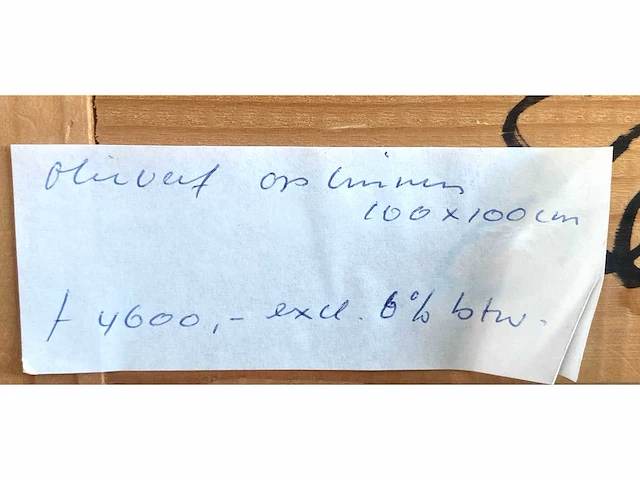 olieverf op linnen
100x100cm
f 4600,- excl. 6% btw.